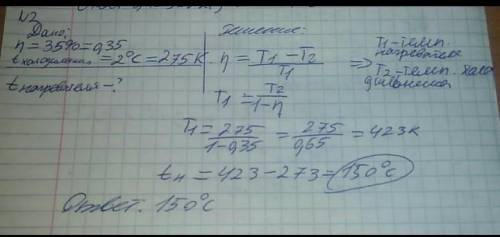 N2
Дано:
η = 35% = 0,35
t холодильника = 2°C = 275 K
t нагревателя - ?
Решение:
η = T1 - T2 / T1 =>
T1 = T2 / 1-η
T1 - темп. нагревателя
T2 - темп. холодильника
T1 = 275 / 1-0,35 = 275 / 0,65 = 423 K
tн = 423 - 273 = 150°C
Ответ. 150°C